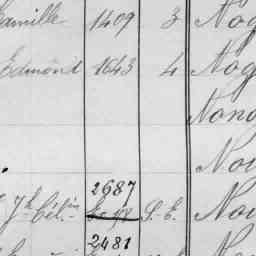 Camille 1409 3 Nog
Edmond 1643 4 Nog
Nono
Nou
2687
Jh Célin S.-E. Nou
2481